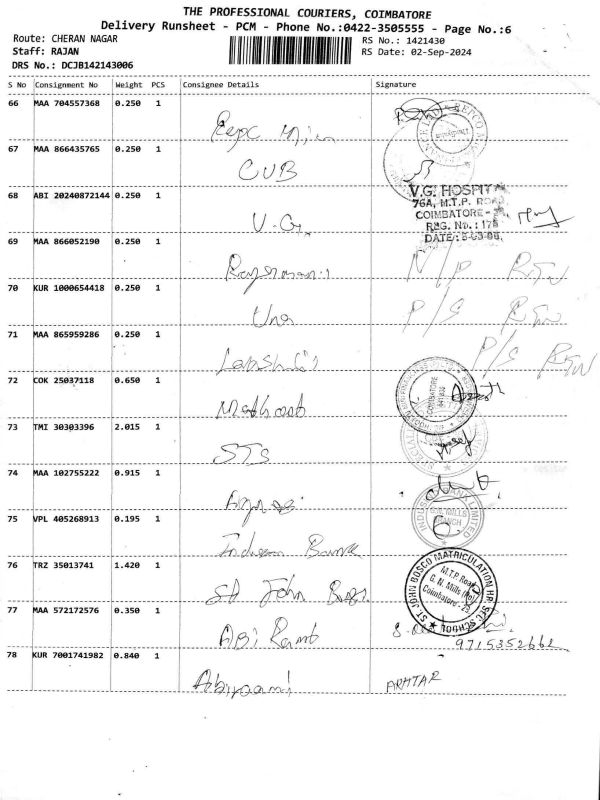 THE PROFESSIONAL COURIERS, COIMBATORE
Delivery Runsheet - PCM - Phone No.:0422-3505555 - Page No.:6
Route: CHERAN NAGAR RS No.: 1421430
Staff: RAJAN RS Date: 02-Sep-2024
DRS No.: DCJB142143006
S No Consignment No Weight PCS Consignee Details Signature
66 MAA 704557368 0.250 1
67 MAA 866435765 0.250 1 CUB
68 ABI 20240872144 0.250 1 V.G.
V.G. HOSPITAL
76A, M.T.P. ROAD
COIMBATORE -
REG. No.: 175
DATE:
69 MAA 866052190 0.250 1 N/P RTN
70 KUR 1000654418 0.250 1 Uma P/S RTN
71 MAA 865959286 0.250 1 P/S RTN
72 COK 25037118 0.650 1
COIMBATORE
73 TMI 30303396 2.015 1 STS
74 MAA 102755222 0.915 1
75 VPL 405268913 0.195 1
G.N. MILLS
BRANCH
76 TRZ 35013741 1.420 1 St John
ST. JOHN BOSCO MATRICULATION HR. SEC. SCHOOL
M.T.P. Road
G. N. Mills (Po)
Coimbatore - 29
77 MAA 572172576 0.350 1 ABi
9715352662
78 KUR 7001741982 0.840 1 Abiraami AKHTAR